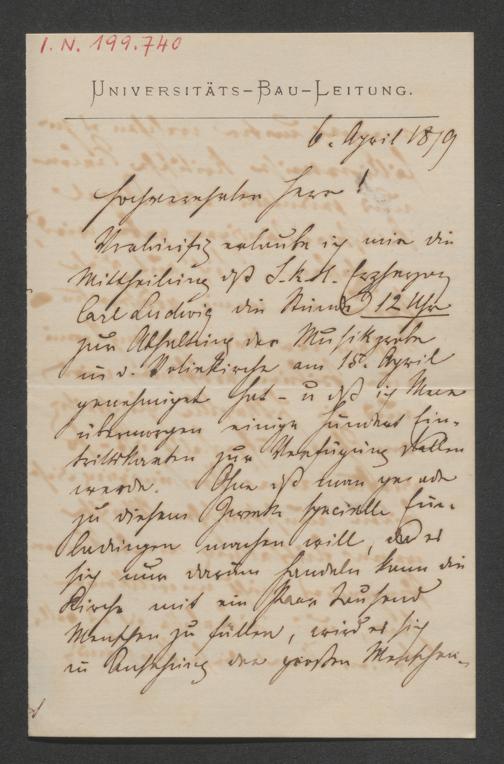 I. N. 199.740
UNIVERSITÄTS-BAU-LEITUNG.
6. April 1879
Hochverehrter Herr!
Vorläufig erlaube ich mir die
Mittheilung dß S. k. H. Erzherzog
Carl Ludwig die Stunde 12 Uhr
zur Abhaltung der Musikprobe
in d. Votivkirche am 15t. April
genehmiget hat – u dß ich Ihnen
übermorgen einige hundert Ein-
trittskarten zur Verfügung stellen
werde. Ohne dß man gerade
zu diesem Zwecke specielle Ein-
ladungen machen will, da es
sich nur darum handeln kann die
Kirche mit ein Paar tausend
Menschen zu füllen, wird es sich
in Ansehung der großen Menschen-